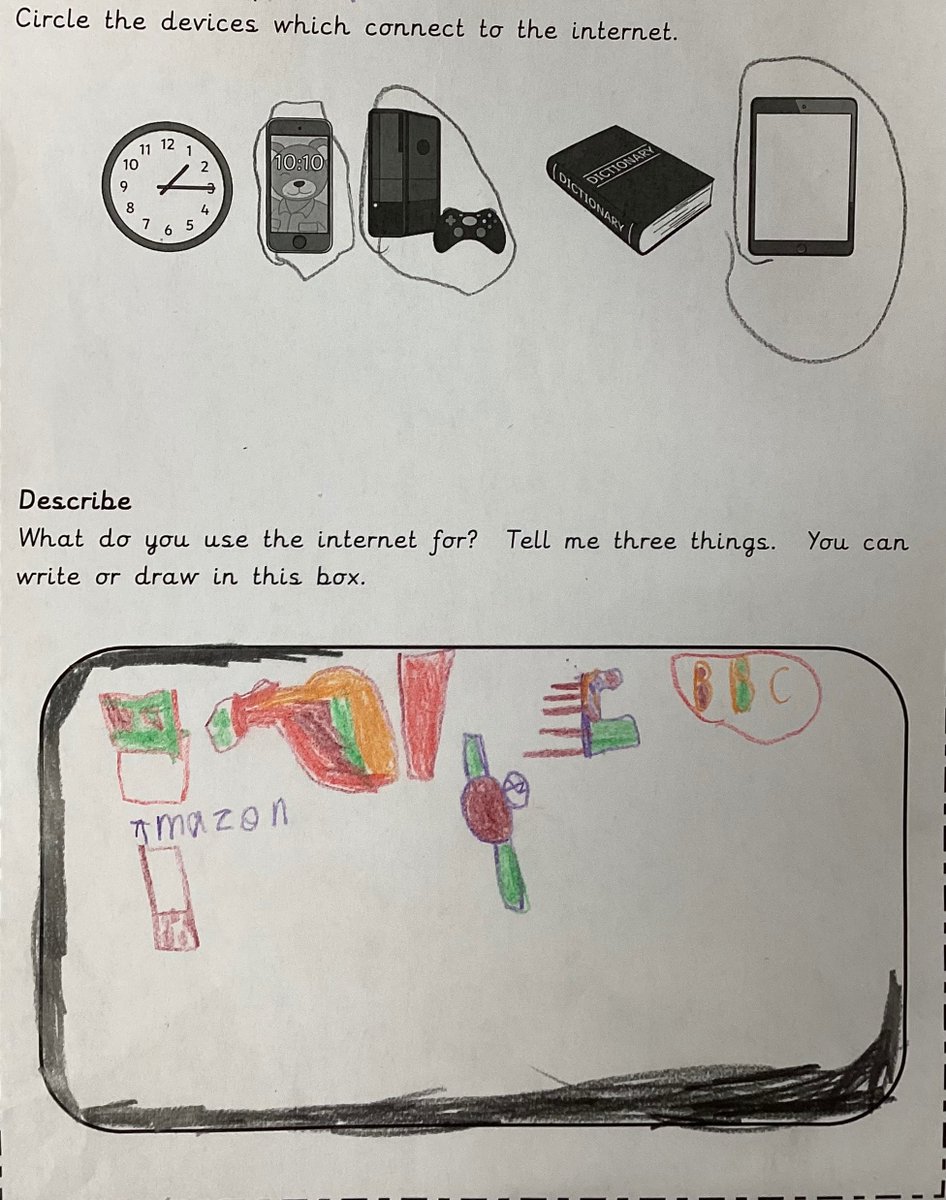 Circle the devices which connect to the internet.
11 12 1
10 2
9 3
8 4
7 6 5
10:10
DICTIONARY
DICTIONARY
Describe
What do you use the internet for? Tell me three things. You can
write or draw in this box.
BBC
Amazon